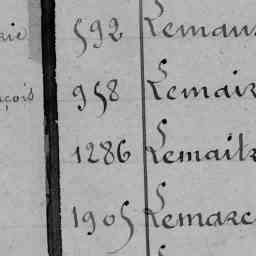 rie 592 Lemans
nçois 958 Lemair
1286 Lemaitr
1905 Lemarc